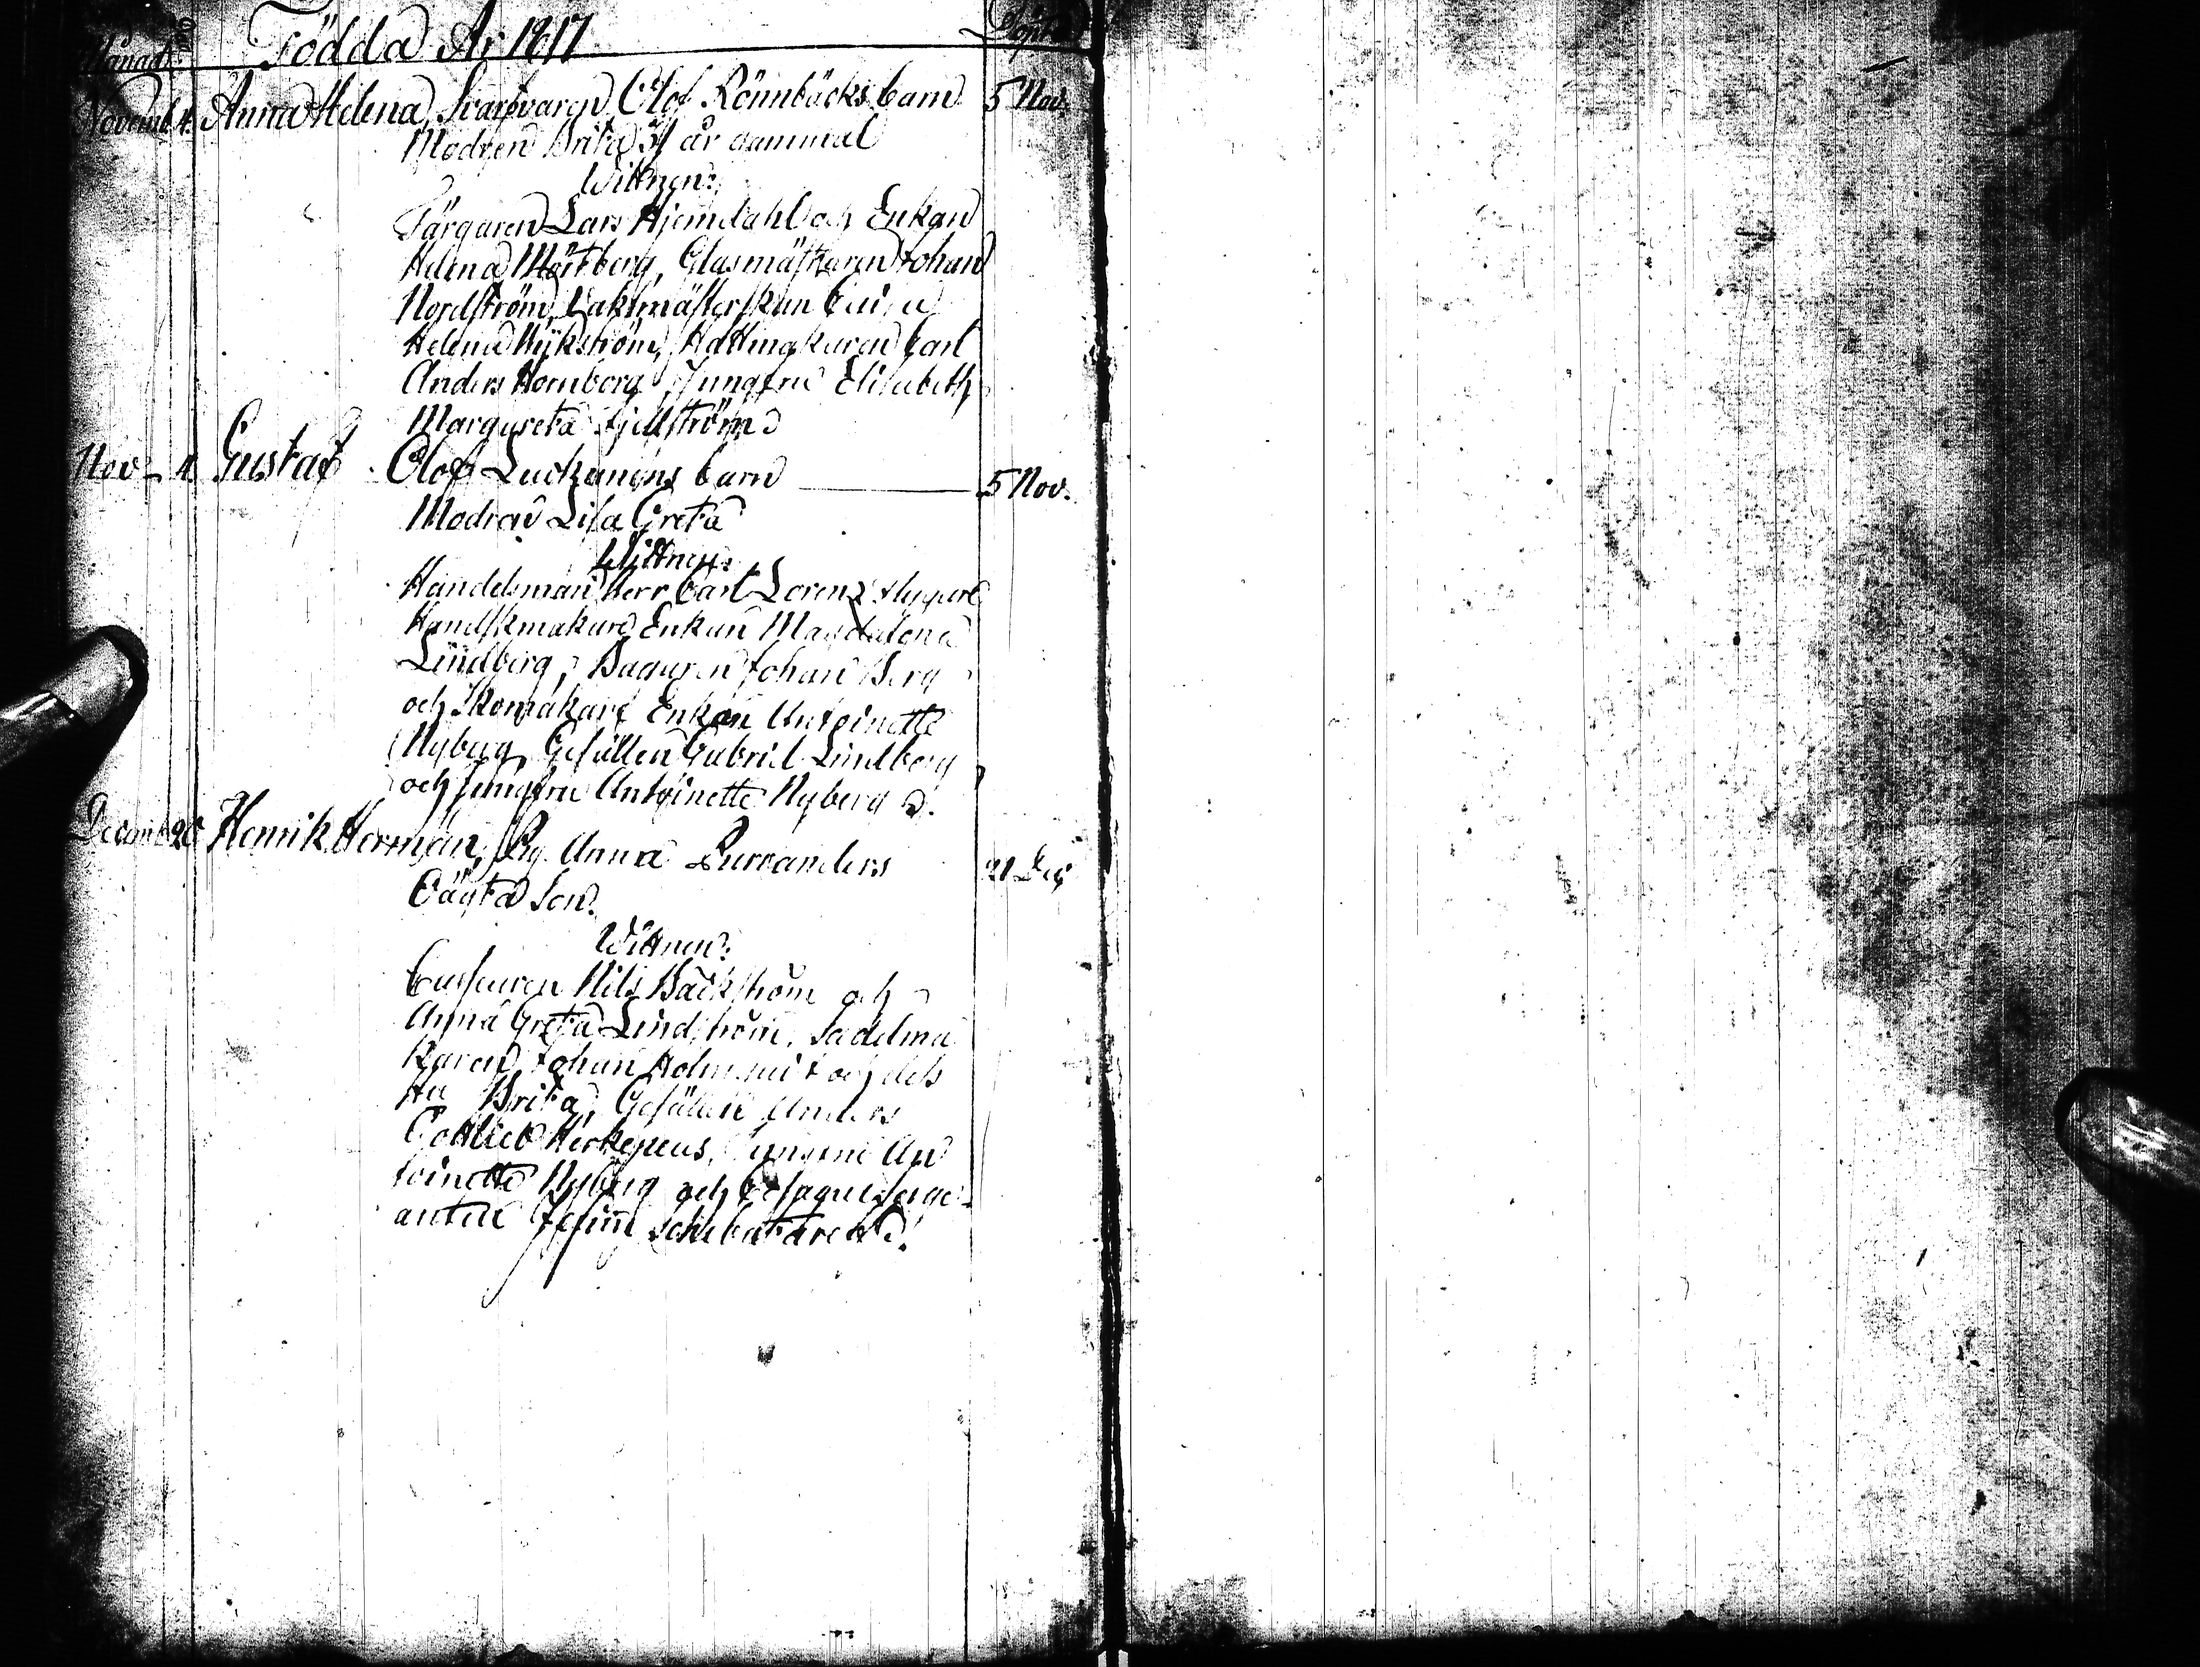 Månad Dag Födda År 1817 Döpte
Novemb. 4. Anna Helena, Svarfvaren Olof Rönnbäcks barn 5 Nov.
Modren Brita år gammal
Wittnen:
Färgaren Lars Hjemdahl och Enkan
Helena Mörtberg, Glasmästaren Johan
Nordström, Vaktmästerskan
Helena Nykström, Hattmakaren Carl
Anders Homborg, Jungfru Elisabeth
Margareta Fjellström
Nov. 4. Gustaf Olof Luckanens barn 5 Nov.
Modren Lisa Greta
Wittnen:
Handelsman Herr Carl Lorenz
Handskmakare Enkan Magdalena
Lindberg, Bagaren Johan Berg
och Skomakare Enkan Antoinette
Nyberg, Gesällen Gabriel Lindberg
och Jungfru Antoinette Nyberg
Decemb. 20 Henrik Herman, Pig. Anna Burranders 21 Dec.
Oägta Son.
Wittnen:
Nils Bäckström och
Anna Greta Lindström, Sadelma
karen Johan och dess
Hu Brita, Gesällen Anders
Gottlieb Herkepeus, Jungfru An
toinette Nyberg och
anten